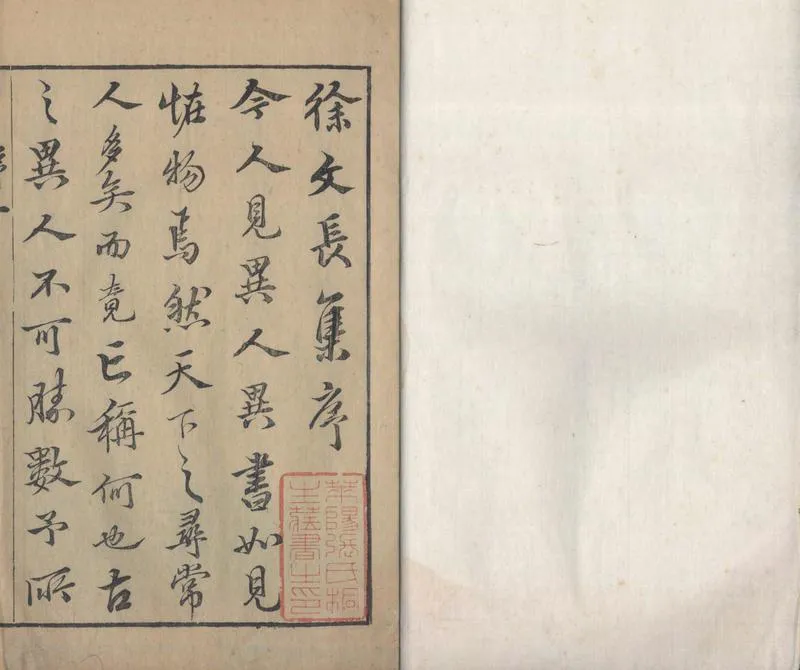 徐文長集序
今人見異人異書如見
恠物焉然天下之尋常
人多矣而竟亡稱何也古
之異人不可勝數予所
陽張氏桐
生藏書之印